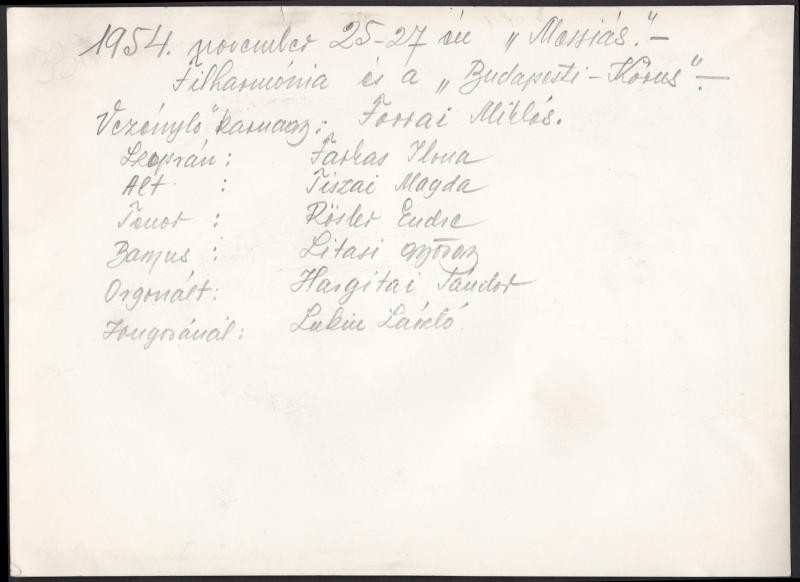 1954. november 25-27 én „Messiás."-
Filharmónia és a „Budapesti-Kórus"-
Vezénylő karnagy: Forrai Miklós.
Szoprán: Farkas Ilona
Alt : Tiszai Magda
Tenor : Rösler Endre
Bassus : Litasi György
Orgonált: Hargitai Sándor
Zongoránál: Lukin László